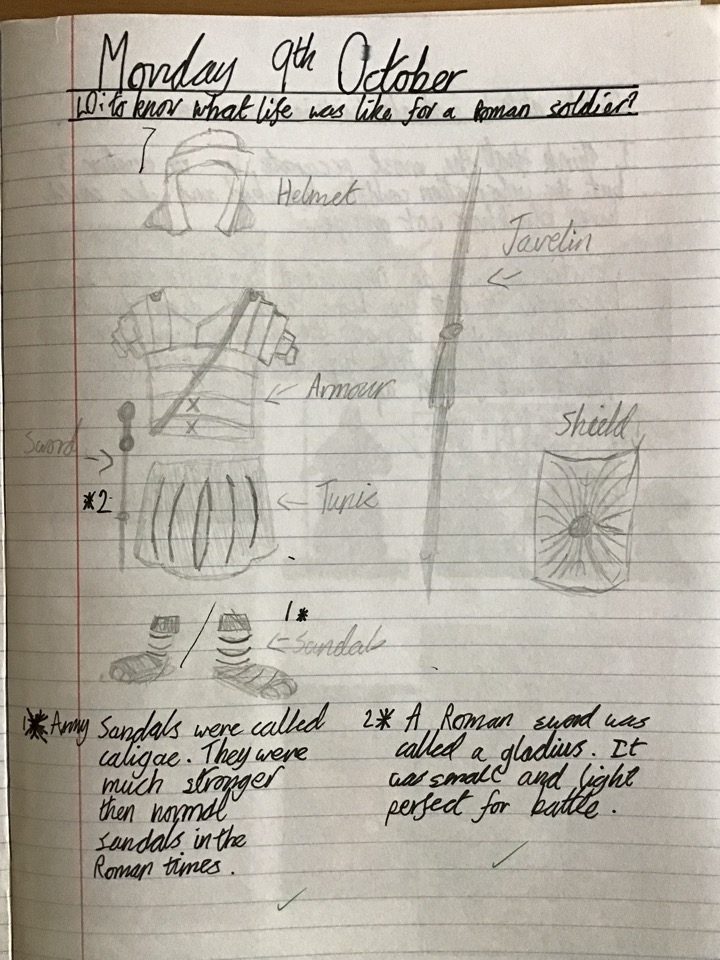 Monday 9th October
LO: to know what life was like for a Roman soldier?
Helmet
Javelin
Armour
Shield
Sword
*2
Tunic
1*
Sandals
1* Army Sandals were called
caligae. They were
much stronger
then normal
sandals in the
Roman times.
2* A Roman sword was
called a gladius. It
was small and light
perfect for battle.